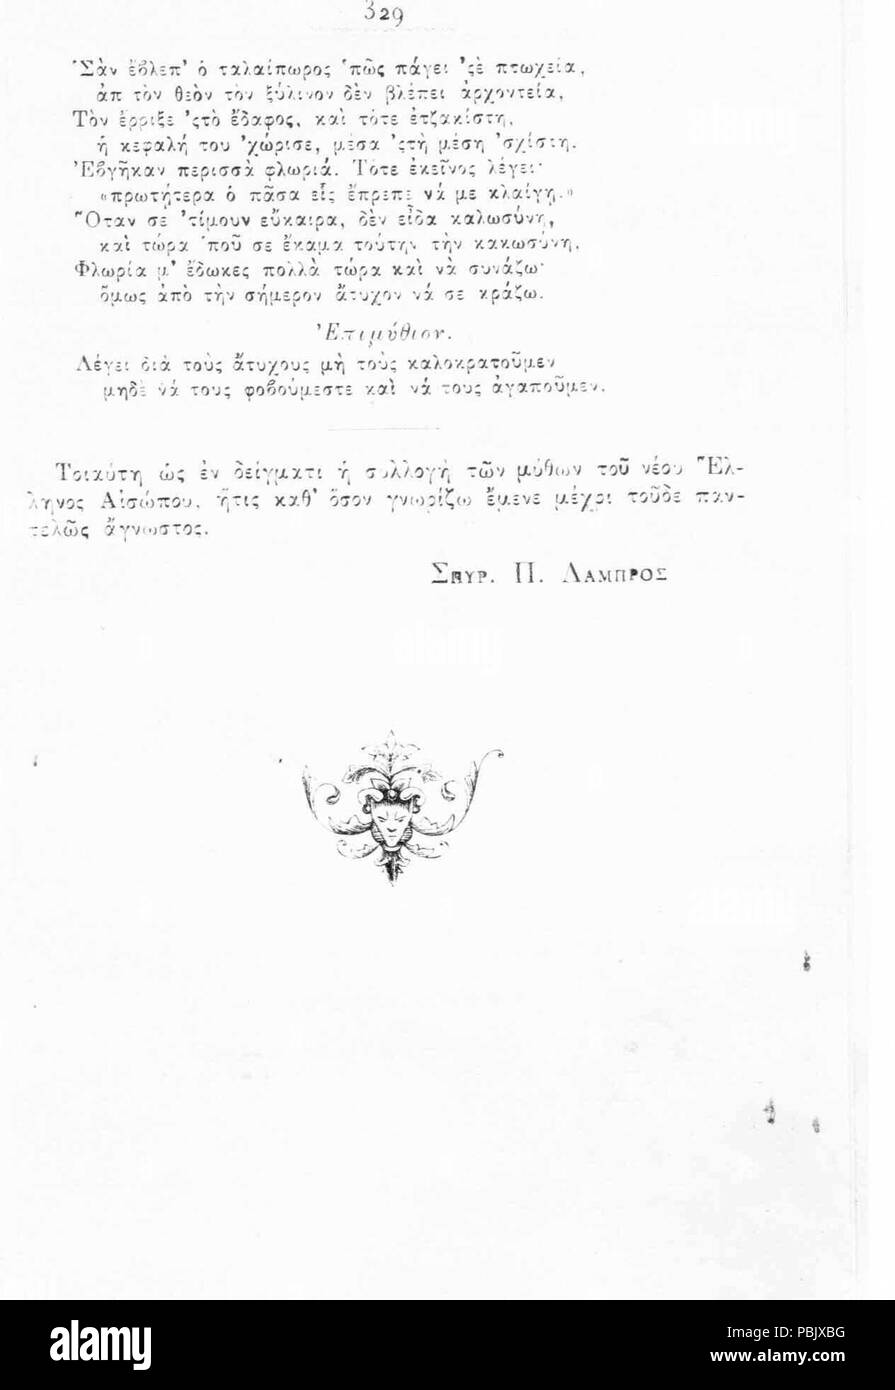 329
Σὰν ἔβλεπ' ὁ ταλαίπωρος 'πῶς πάγει 'ςὲ πτωχεία,
ἀπ τὸν θεὸν τὸν ξύλινον δὲν βλέπει ἀρχοντεία,
Τὸν ἔρριξε 'ςτὸ ἔδαφος, καὶ τότε ἐτζακίστη,
ἡ κεφαλή του 'χώρισε, μέσα 'ςτὴ μέση 'σχίστη.
'Εβγῆκαν περισσὰ φλωριά. Τότε ἐκεῖνος λέγει·
«πρωτήτερα ὁ πᾶσα εἷς ἔπρεπε νά με κλαίγη.»
Ὅταν σὲ 'τίμουν εὔκαιρα, δὲν εἶδα καλωσύνη,
καὶ τώρα 'ποῦ σε ἔκαμα τούτην τὴν κακωσύνη,
Φλωρία μ' ἔδωκες πολλὰ τώρα καὶ νὰ συνάζω·
ὅμως ἀπὸ τὴν σήμερον ἄτυχον νά σε κράζω.
Ἐπιμύθιον.
Λέγει διὰ τοὺς ἄτυχους μὴ τοὺς καλοκρατοῦμεν
μηδὲ νά τους φοβούμεστε καὶ νά τους ἀγαποῦμεν.
Τοιαύτη ὡς ἐν δείγματι ἡ συλλογὴ τῶν μύθων τοῦ νέου Ἕλ-
ληνος Αἰσώπου, ἥτις καθ' ὅσον γνωρίζω ἔμενε μέχρι τοῦδε παν-
τελῶς ἄγνωστος.
Σπυρ. Π. Λαμπρος
alamy
Image ID: PBJXBG
www.alamy.com